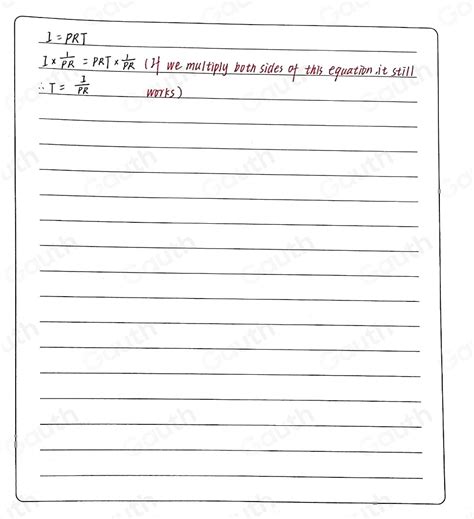 I = PRT
I × 1/PR = PRT × 1/PR (If we multiply both sides of this equation, it still
∴ T = I/PR works)
Gauth